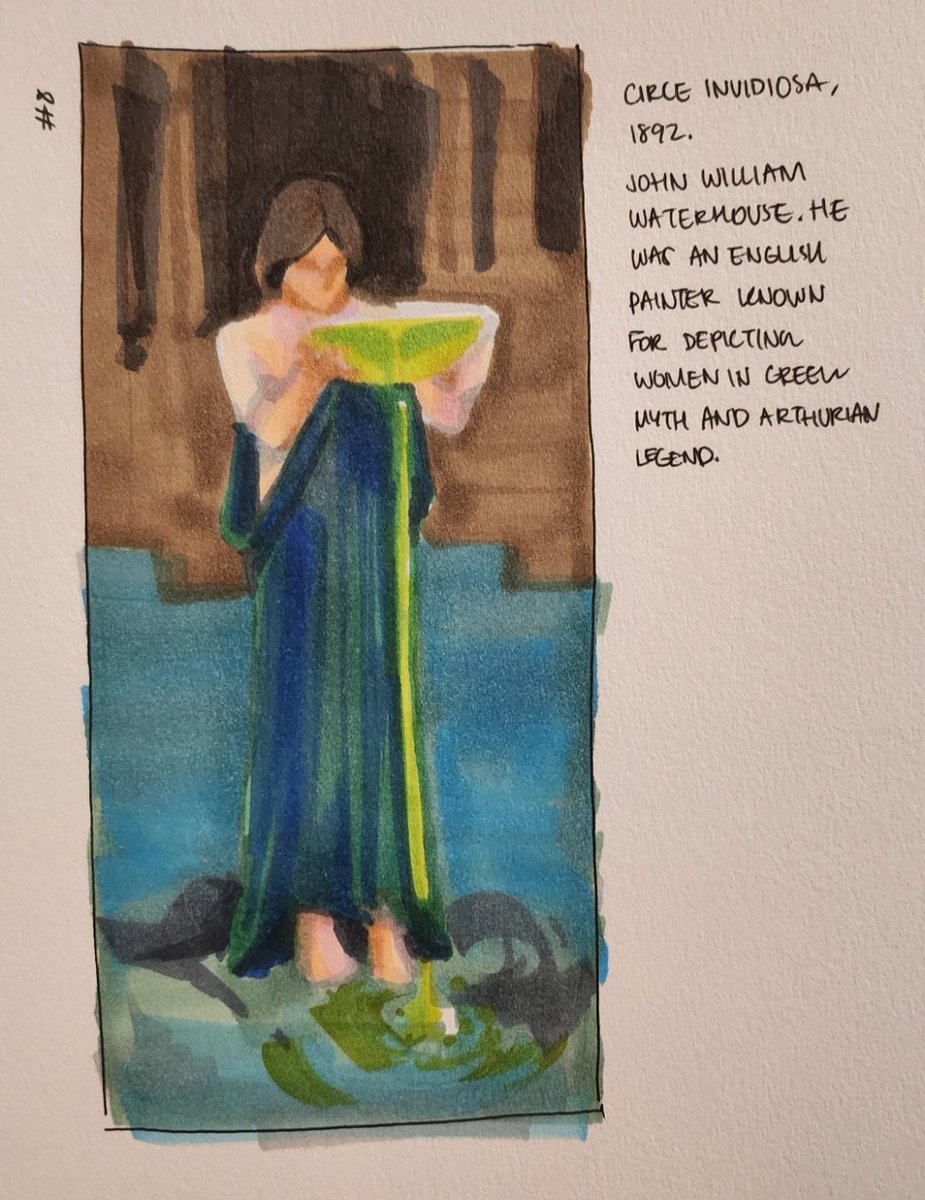 #8
CIRCE INVIDIOSA,
1892.
JOHN WILLIAM
WATERHOUSE. HE
WAS AN ENGLISH
PAINTER KNOWN
FOR DEPICTING
WOMEN IN GREEK
MYTH AND ARTHURIAN
LEGEND.